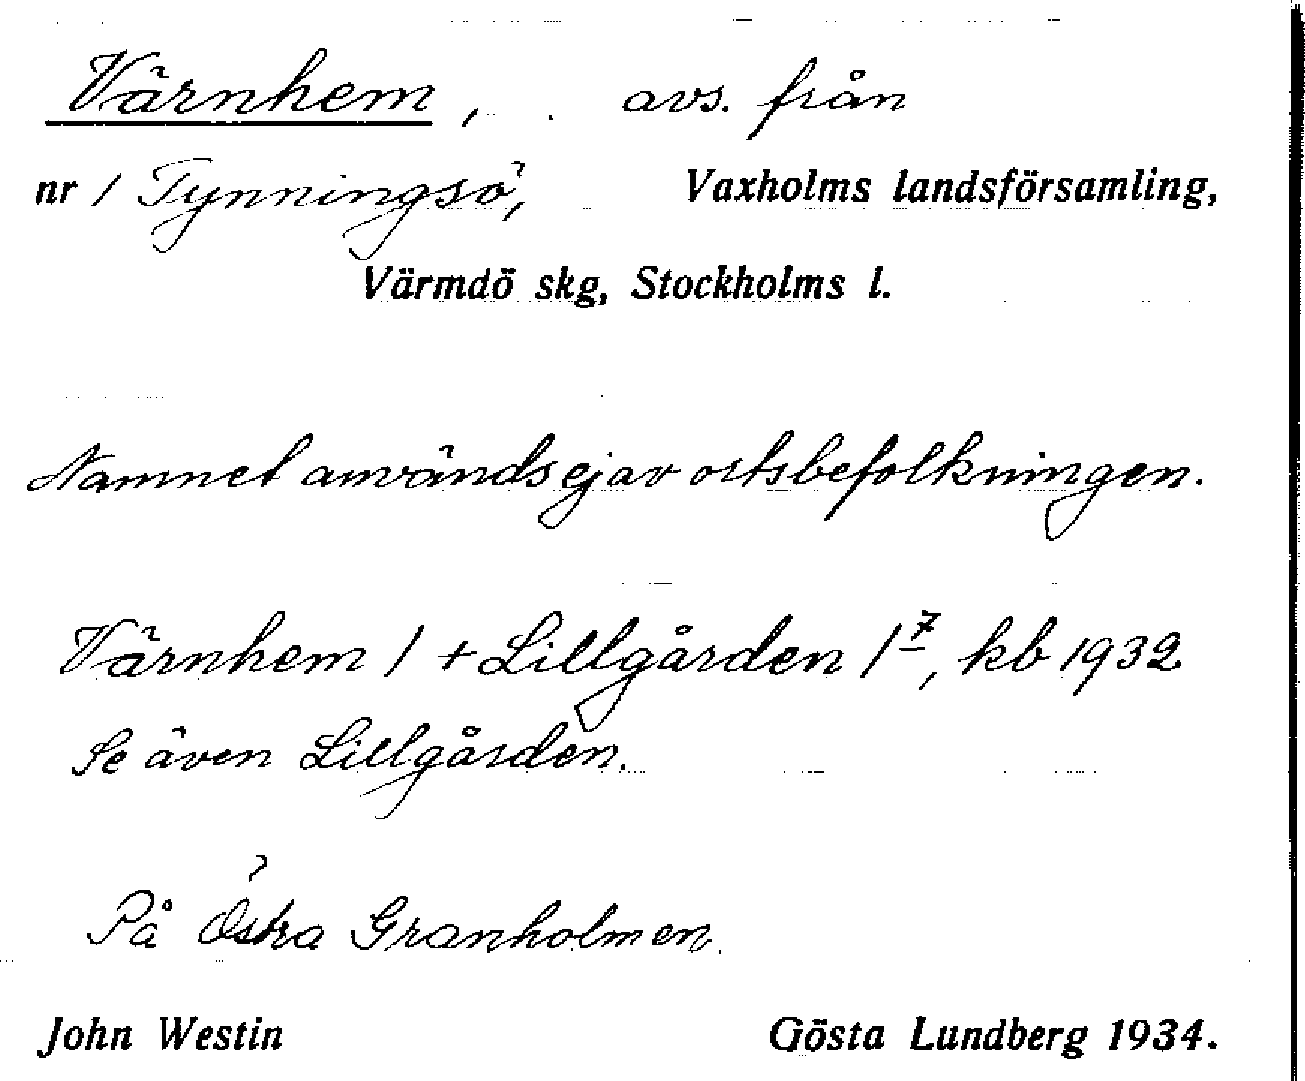 Värnhem, avs. från
nr 1 Tynningsö, Vaxholms landsförsamling,
Värmdö skg, Stockholms l.
Namnet används ej av ortsbefolkningen.
Värnhem 1 + Lillgården 1 7, kb 1932
Se även Lillgården.
På Östra Granholmen.
John Westin Gösta Lundberg 1934.